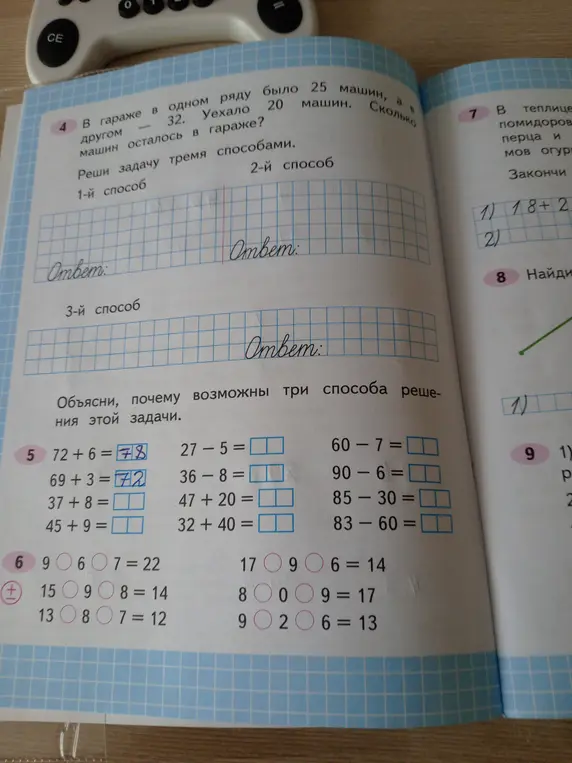 CE
0
1
=
4 В гараже в одном ряду было 25 машин, а в
другом — 32. Уехало 20 машин. Сколько
машин осталось в гараже?
Реши задачу тремя способами.
1-й способ 2-й способ
Ответ: Ответ:
3-й способ
Ответ:
Объясни, почему возможны три способа реше-
ния этой задачи.
5 72 + 6 = 78 27 − 5 = 60 − 7 =
69 + 3 = 72 36 − 8 = 90 − 6 =
37 + 8 = 47 + 20 = 85 − 30 =
45 + 9 = 32 + 40 = 83 − 60 =
6 9 ○ 6 ○ 7 = 22 17 ○ 9 ○ 6 = 14
± 15 ○ 9 ○ 8 = 14 8 ○ 0 ○ 9 = 17
13 ○ 8 ○ 7 = 12 9 ○ 2 ○ 6 = 13
7 В теплице
помидоров
перца и
мов огур
Закончи
1) 18 + 2
2)
8 Найди
1)
9 1)
р
2